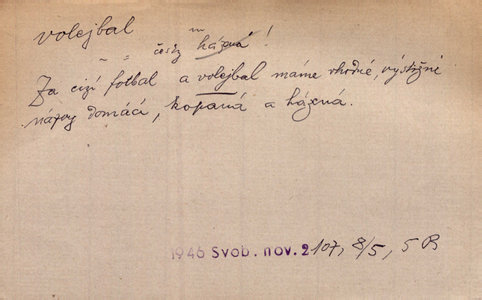 volejbal
" " česky házená!
Za cizí fotbal a volejbal máme vhodné, výstižné
názvy domácí, kopaná a házená.
1946 Svob. nov. 2 107, 8/5, 5 B